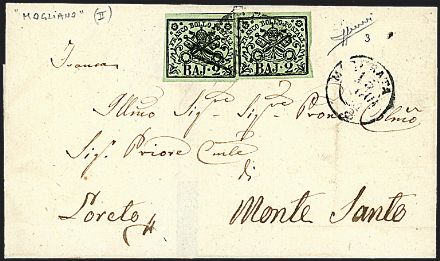 "MOGLIANO" (II)
FRANCO BOLLO POSTALE FRANCO BOLLO POSTALE
BAJ. 2 BAJ. 2
3
Franca
MACERATA
Illmo Sigre Sigre Pron Colmo
Sig. Priore Comle
di
Loreto Monte Santo